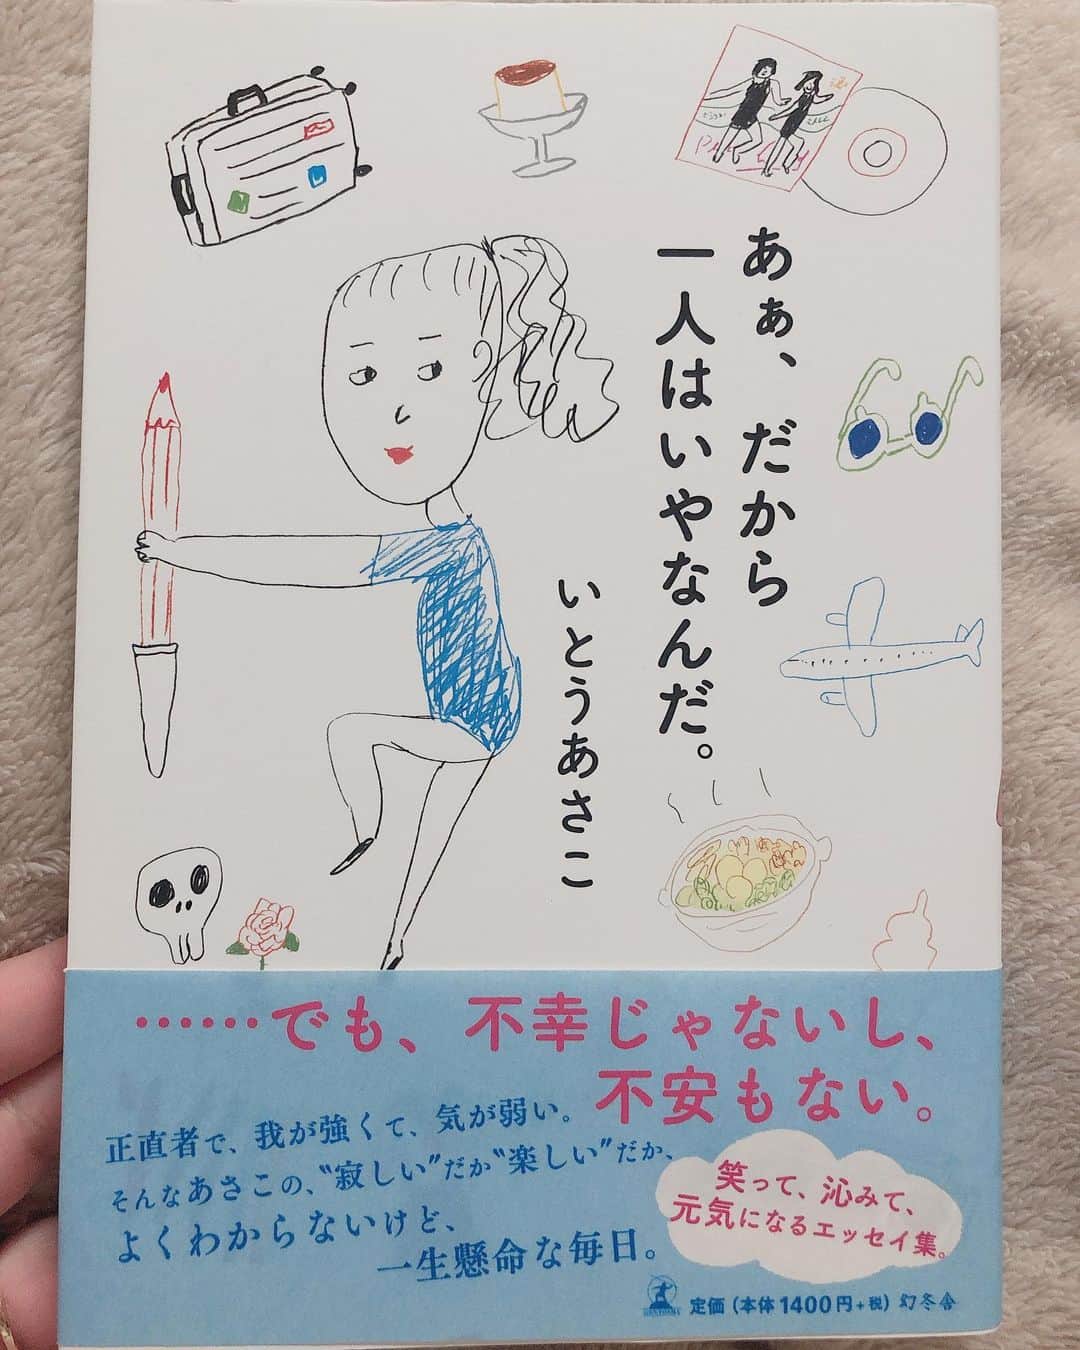 あぁ、だから
一人はいやなんだ。
いとうあさこ
……でも、不幸じゃないし、
不安もない。
正直者で、我が強くて、気が弱い。
そんなあさこの、“寂しい”だか“楽しい”だか、
よくわからないけど、
一生懸命な毎日。
笑って、沁みて、
元気になるエッセイ集。
定価（本体1400円+税）幻冬舎